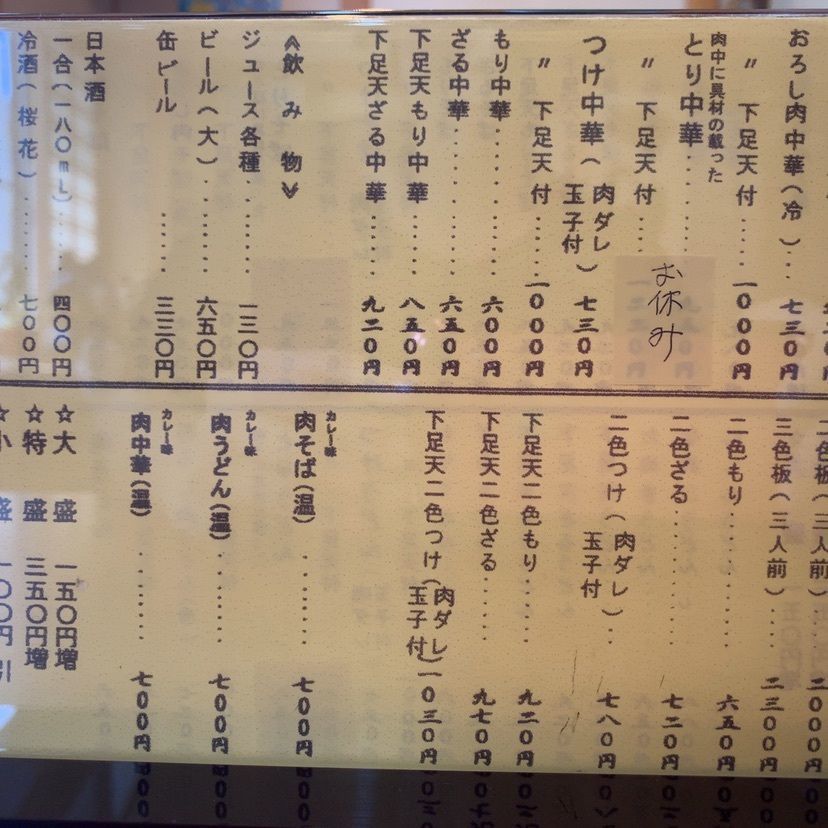 おろし肉中華(冷)... 七三〇円
〃 下足天付..... 一〇〇〇円
肉中に具材の載った
とり中華........
〃 下足天付..... お休み
つけ中華(肉ダレ 玉子付) 七三〇円
〃 下足天付..... 一〇〇〇円
もり中華........ 六〇〇円
ざる中華........ 六五〇円
下足天もり中華... 八五〇円
下足天ざる中華... 九二〇円
≪飲み物≫
ジュース各種..... 一三〇円
ビール(大)..... 六五〇円
缶ビール .... 三三〇円
日本酒
一合(一八〇mL)..... 四〇〇円
冷酒(桜花)...... 七〇〇円
二色板(三人前).. 二〇〇〇円
三色板(三人前)... 二三〇〇円
二色もり........ 六五〇円
二色ざる........ 七二〇円
二色つけ(肉ダレ 玉子付)... 七八〇円
下足天二色もり.... 九二〇円
下足天二色ざる.... 九七〇円
下足天二色つけ(肉ダレ 玉子付) 一〇三〇円
カレー味
肉そば(温) ...... 七〇〇円
カレー味
肉うどん(温) ...... 七〇〇円
カレー味
肉中華(温) ...... 七〇〇円
☆大 盛 一五〇円増
☆特 盛 三五〇円増
☆小 盛 一〇〇円引